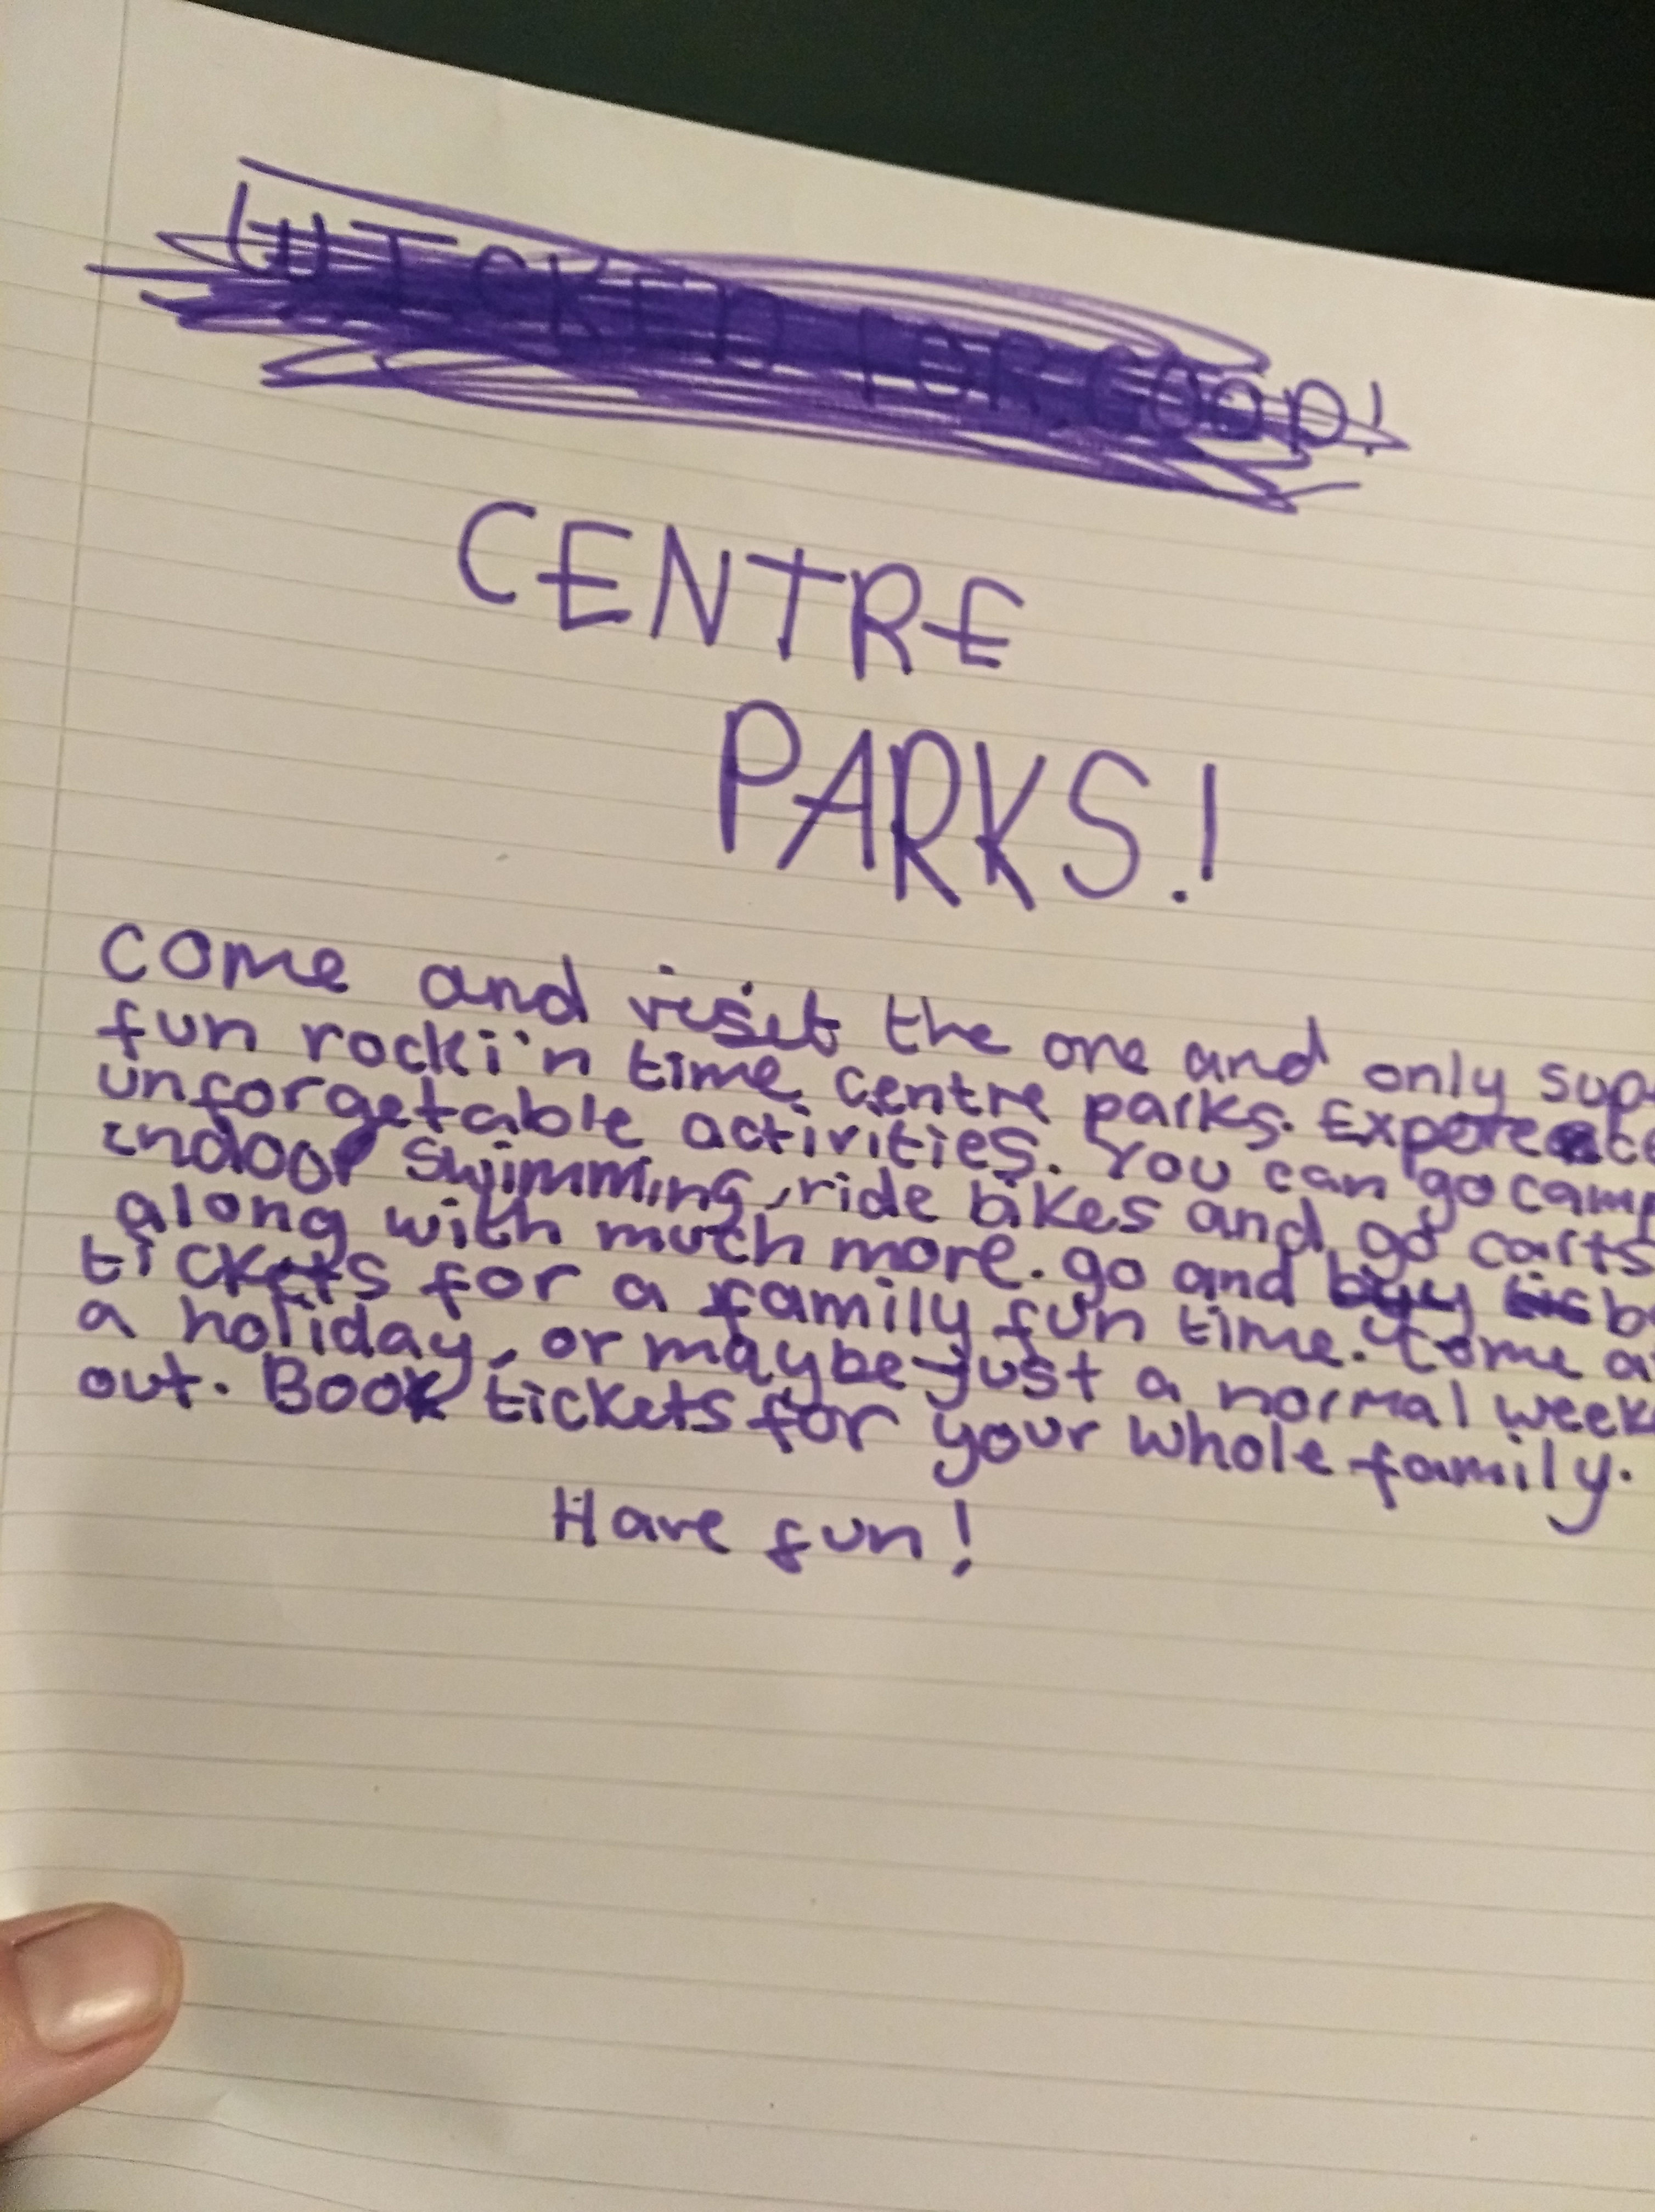 WICKED FOR GOOD!
CENTRE
PARKS!
come and visit the one and only sup
fun rocki'n time centre parks. Expere
unforgetable activities. You can go camp
indoor swimming, ride bikes and go carts
along with much more. go and buy
tickets for a family fun time. Come a
a holiday, or maybe just a normal week
out. Book tickets for your whole family.
Have fun!